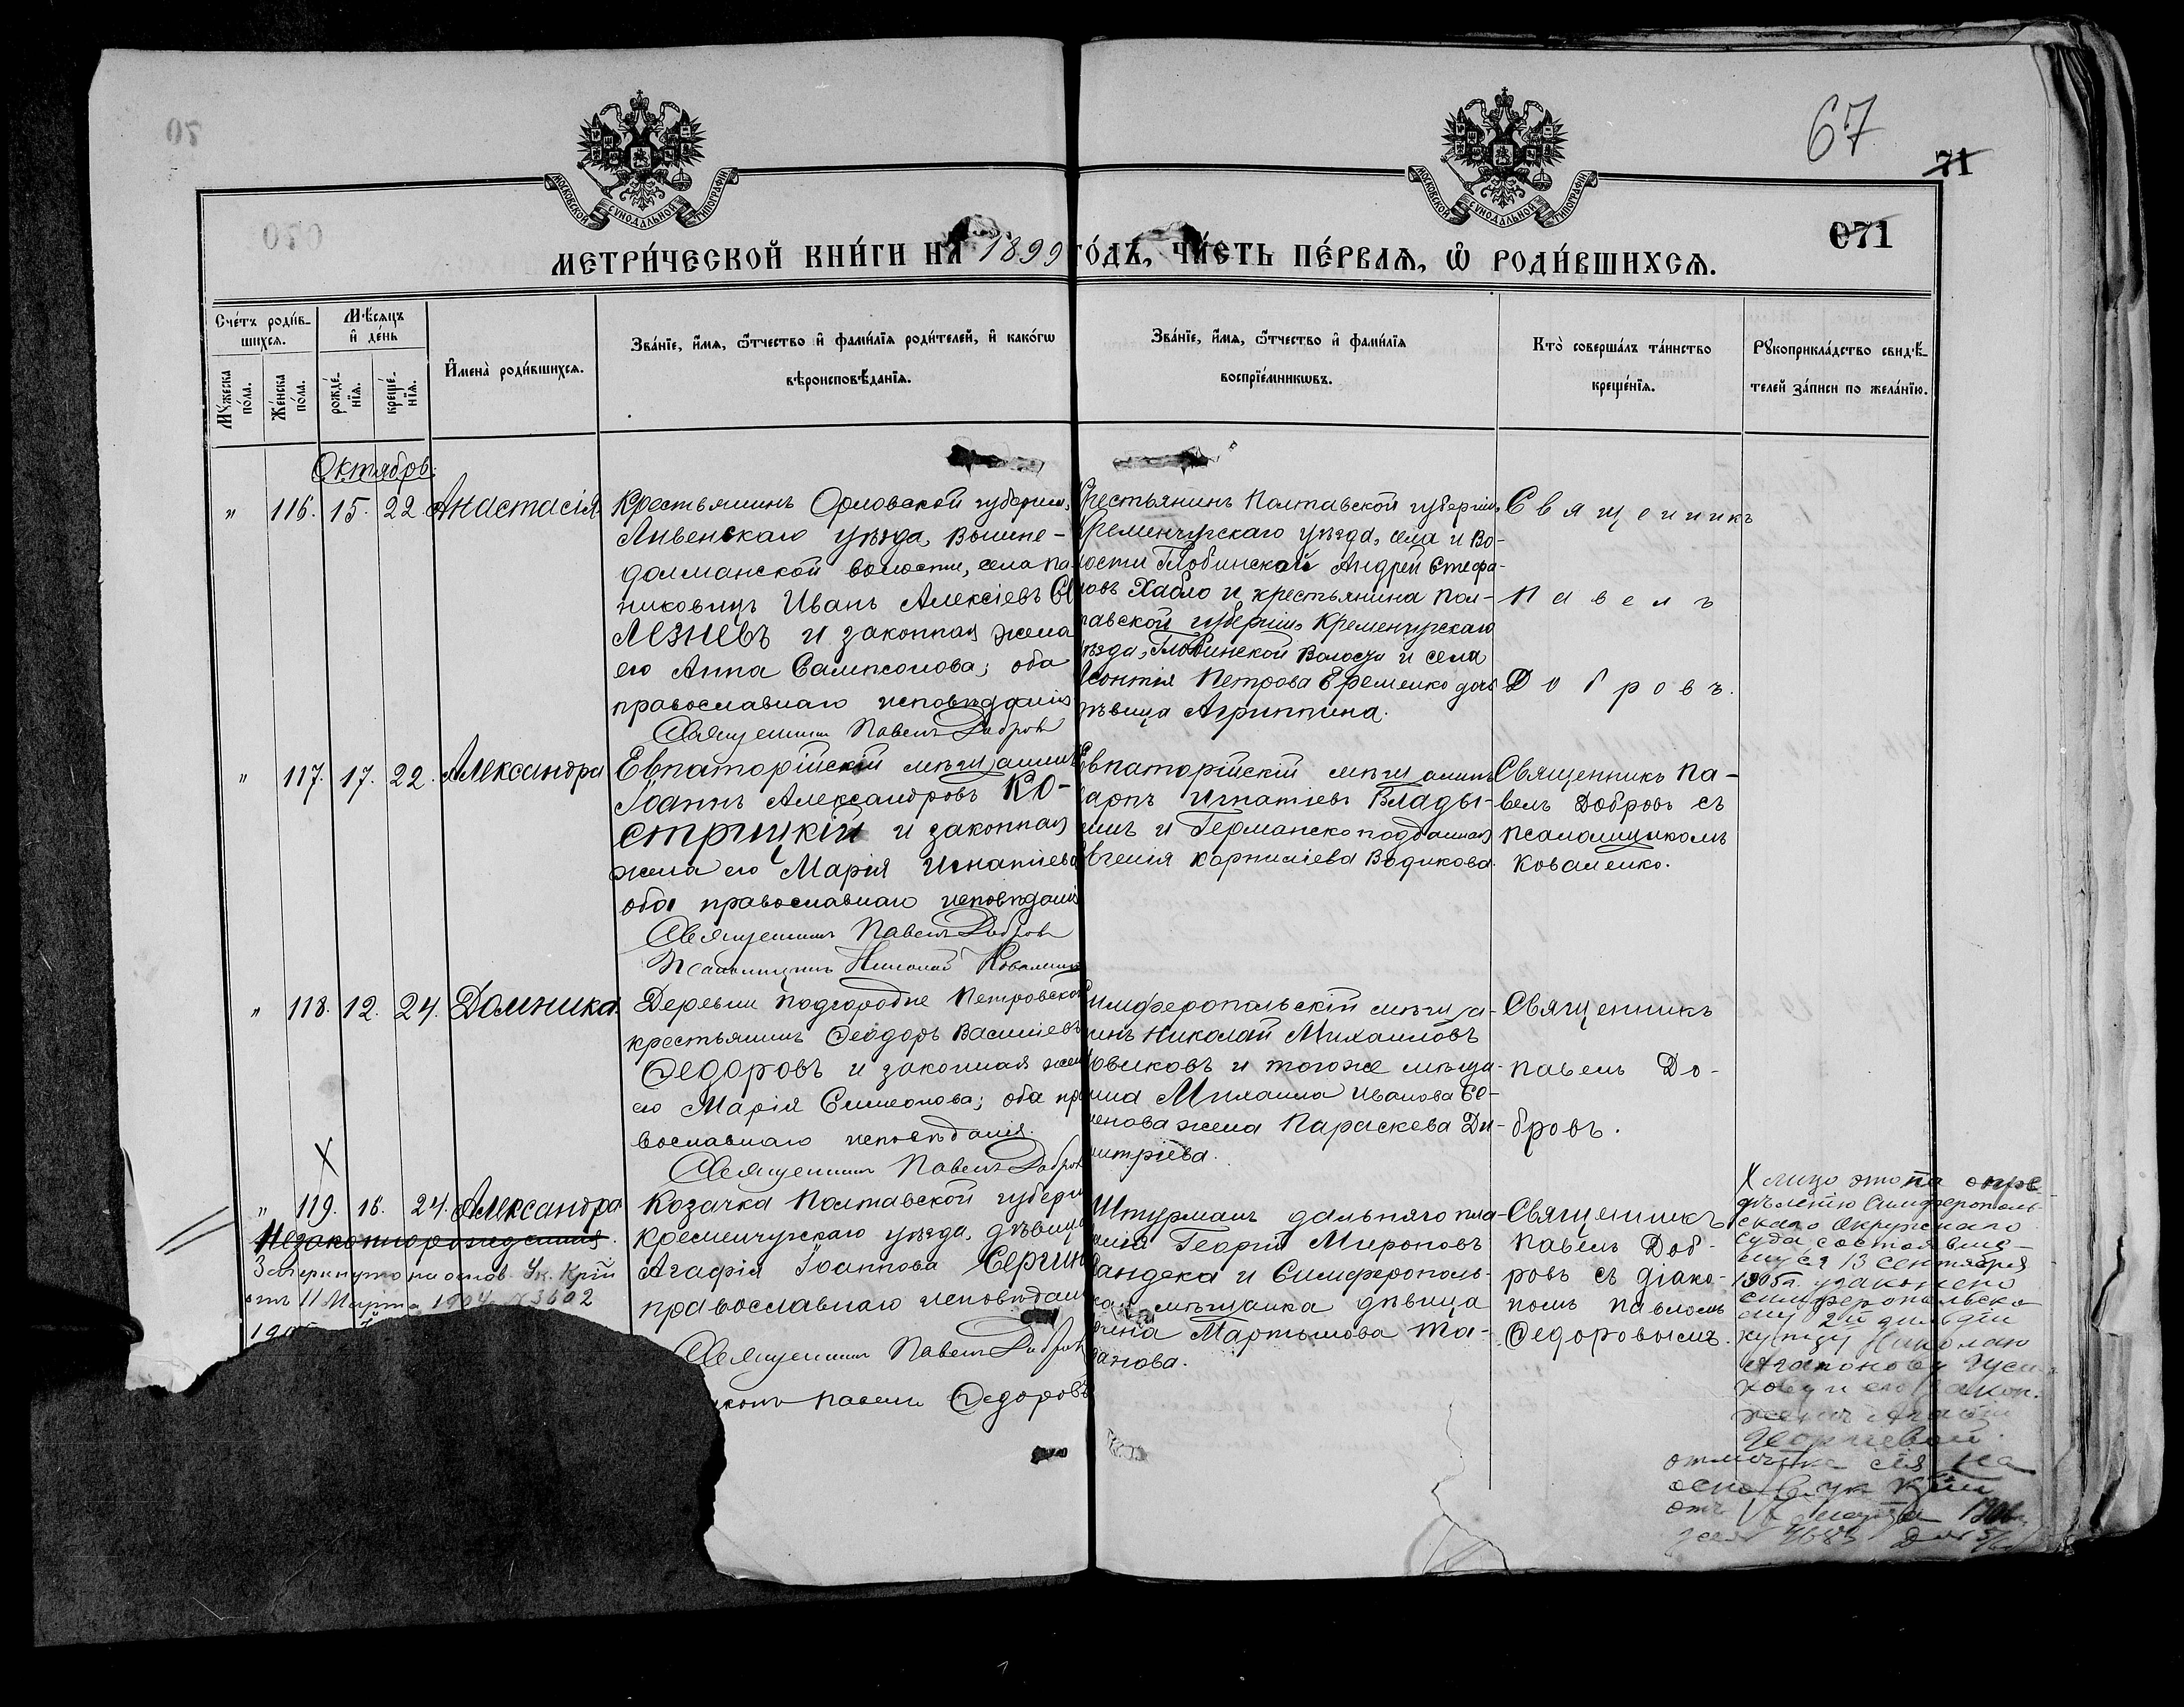 67
71
071
МОСКОВСКОЙ СѴНОДАЛЬНОЙ ТИПОГРАФІИ
МОСКОВСКОЙ СѴНОДАЛЬНОЙ ТИПОГРАФІИ
МЕТРИ́ЧЕСКОЙ КНИ́ГИ НА 1899 ГО́ДЪ, ЧА́СТЬ ПЕ́РВАѦ, Ѡ҆ РОДИ́ВШИХСѦ.
Сче́тъ роди́в-
шихсѧ.
Мѣ́сѧцъ
и҆ де́нь
Мꙋ́жеска
по́ла.
Же́нска
по́ла.
рожде́-
нїѧ.
креще́-
нїѧ.
И҆мена̀ роди́вшихсѧ.
Зва́нїе, и҆́мѧ, ѻ҆́тчество и҆ фами́лїѧ роди́телей, и҆ како́гѡ
вѣроисповѣ́данїѧ.
Зва́нїе, и҆́мѧ, ѻ҆́тчество и҆ фами́лїѧ
воспрїе́мникѡвъ.
Кто̀ соверша́лъ та́инство
креще́нїѧ.
Рꙋкоприкла́дство свидѣ́-
телей за́писи по жела́нїю.
Октябрь
" 116. 15. 22. Анастасія
Крестьянинъ Орловской губерніи,
Ливенскаго уѣзда, Вышне-
долманской волости, села Па
никовецъ Иванъ Алексіевъ Се
лезневъ и законная жена
его Анна Сампсонова; оба
православнаго исповѣданія
Священникъ Павелъ Добровъ
Крестьянинъ Полтавской губерніи,
Кременчугскаго уѣзда, села и Во-
лости Глобинской Андрей Стефа-
новъ Хабло и крестьянина Пол-
тавской губерніи, Кременчугскаго
уѣзда, Глобинской Волости и села
Леонтія Петрова Еременко дочь
дѣвица Агриппина.
Священникъ
Павелъ
Добровъ.
" 117. 17. 22. Александра
Евпаторійскій мѣщанинъ
Іоаннъ Александровъ Ко-
стрицкій и законная
жена его Марія Игнатіева
оба православнаго исповѣданія
Священникъ Павелъ Добровъ
Псаломщикъ Николай Коваленко
Евпаторійскій мѣщанинъ
Карпъ Игнатіевъ Влады-
и Германскоподданная
Евгенія Корниліева Водикова.
Священникъ Па-
велъ Добровъ съ
псаломщикомъ
Коваленко.
" 118. 12. 24. Домника.
Деревни Подгородне Петровской
крестьянинъ Ѳеодоръ Васильевъ
Ѳедоровъ и законная жена
его Марія Симеонова; оба пра
вославнаго исповѣданія.
Священникъ Павелъ Добровъ
Симферопольскій мѣща-
нинъ Николай Михаиловъ
Новиковъ и того же мѣща-
нина Михаила Иванова Се-
менова жена Параскева Ди-
митріева.
Священникъ
Павелъ До-
бровъ.
Х
" 119. 16. 24. Александра
Незаконнорожденная.
Зачеркнуто на основ. Ук. Кр͠іи
отъ 11 Марта 1904 № 3602
Козачка Полтавской губерніи
Кременчугскаго уѣзда, дѣвица
Агафія Іоаннова Сергин
православнаго исповѣданія
Священникъ Павелъ Добровъ
Діаконъ Павелъ Ѳедоровъ
Штурманъ дальняго пла-
ванія Георгій Мироновъ
и Симферополь-
ская мѣщанка дѣвица
Мартынова Та-
ранова.
Священникъ
Павелъ Доб-
ровъ съ діако-
номъ Павломъ
Ѳедоровымъ.
Х лицо это по опре-
дѣленію Симферополь-
скаго Окружнаго
суда, состоявше-
муся 13 сентября
1905 г. узаконено
симферопольско
му 2й гильдіи
купцу Николаю
Агапонову
и его закон.
женѣ Агафіи
отмѣтка сія на
основ. ук. К͠ріи
отъ марта 1906